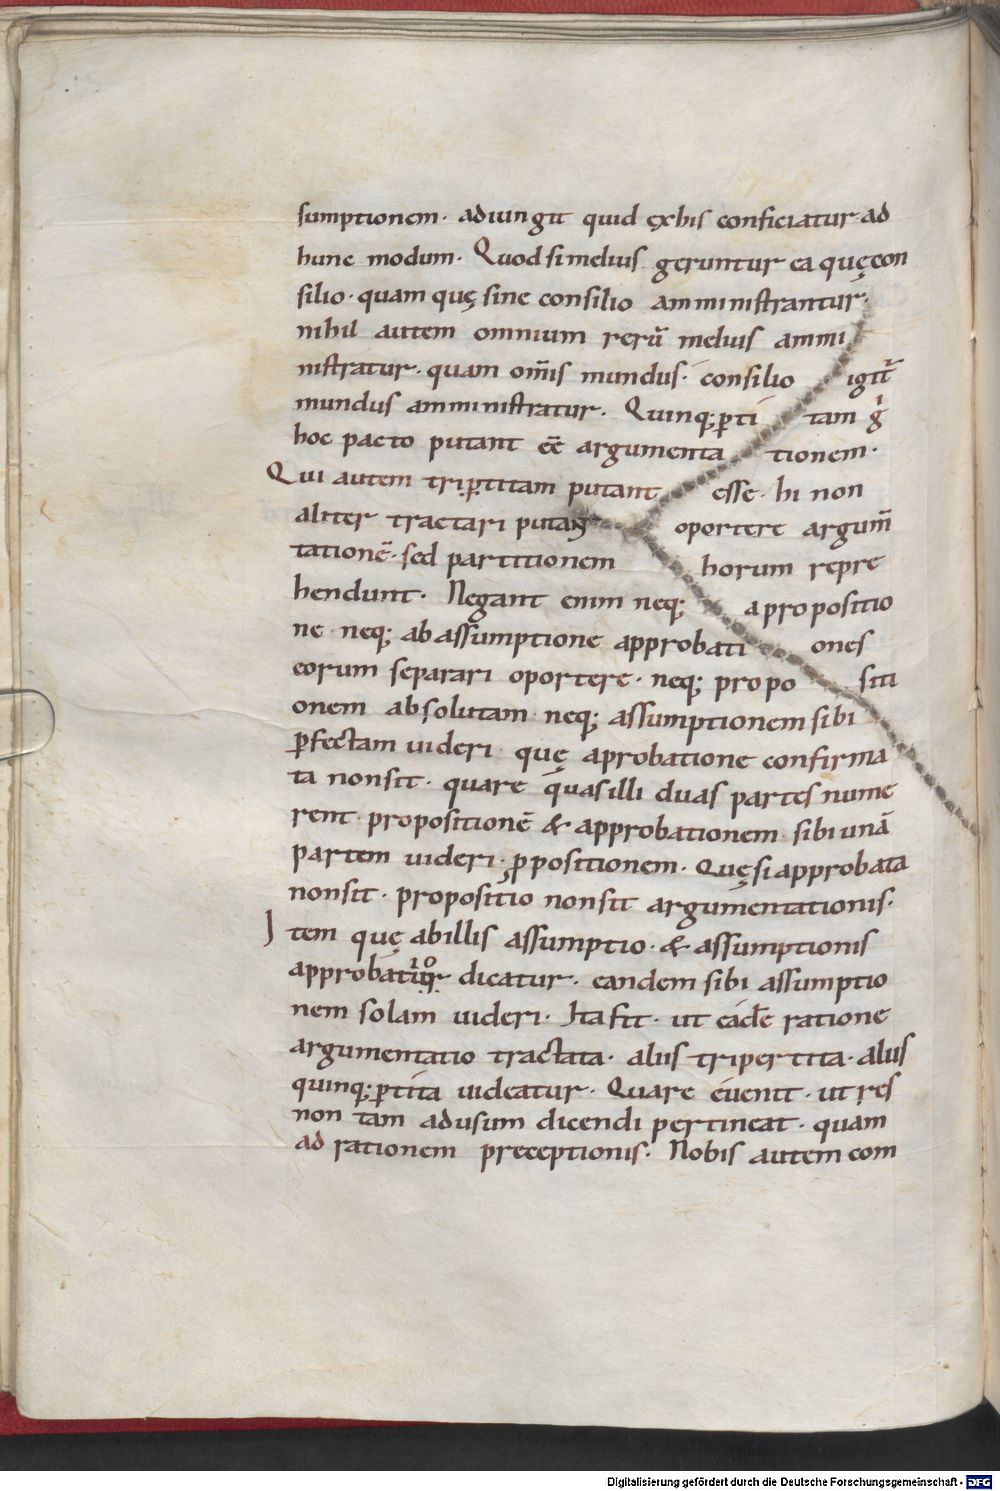 sumptionem · adiungit quid ęxhis conficiatur · ad
hunc modum · Quod si melius geruntur ea quę con
silio · quam quę sine consilio amministrantur ·
nihil autem omnium rerū melius ammi
nistratur · quam om̄is mundus · consilio igit̄
mundus amministratur · Quinq; ꝑti tam gͥ
hoc pacto putant eē argumenta tionem ·
Qui autem triꝑtitam putant esse · hi non
aliter tractari putant oportere argum̄
tationē · sed partitionem horum repre
hendunt · Negant enim neq; a propositio
ne neq; ab assumptione approbati ones
eorum separari oportere · neq; propo siti
onem absolutam neq; assumptionem sibi
ꝑfectam uideri quę aprobatione confirma
ta non sit · quare quas illi duas partes nume
rent propositionē & approbationem sibi unā
partem uideri · ꝓpositionem · Quę si approbata
non sit · propositio non sit argumentationis ·
Item quę ab illis assumptio · & assumptionis
dicatur · eandem sibi assumptio
nem solam uideri · Ita fit · ut eadē ratione
argumentatio tractata · aliis tripertita · aliis
quinq; ꝑtita uideatur · Quare euenit · ut res
non tam ad usum dicendi pertineat · quam
ad rationem preceptionis · Nobis autem com
Digitalisierung gefördert durch die Deutsche Forschungsgemeinschaft - DFG